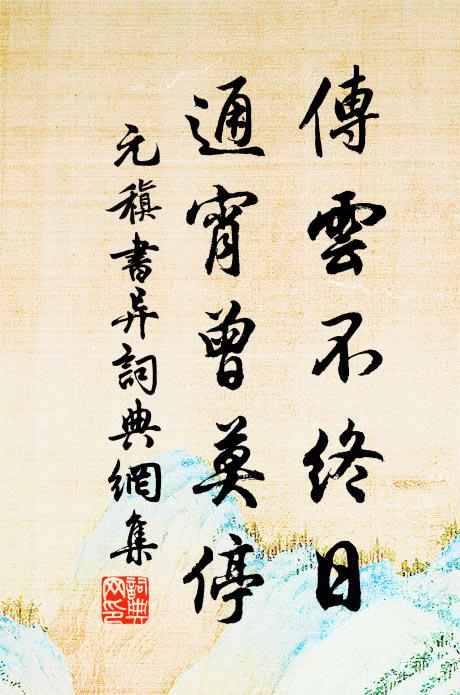 傳雲不終日
通宵曾莫停
元稹書异詞典網集
詞典